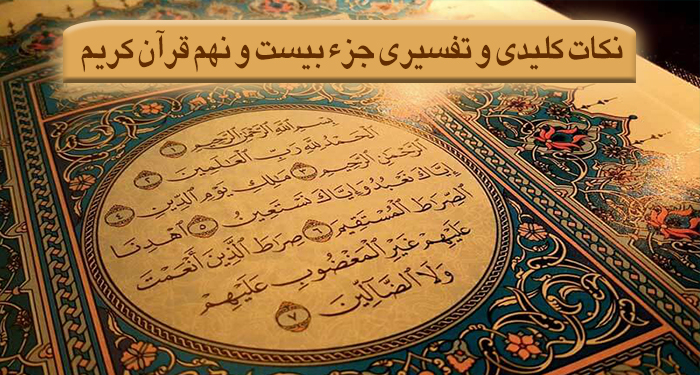 نکات کلیدی و تفسیری جزء بیست و نهم قرآن کریم
بِسْمِ اللَّهِ الرَّحْمَٰنِ الرَّحِيمِ ١
الْحَمْدُ لِلَّهِ رَبِّ الْعَٰلَمِينَ ٢
الرَّحْمَٰنِ الرَّحِيمِ ٣ مَٰلِكِ يَوْمِ الدِّينِ ٤
إِيَّاكَ نَعْبُدُ وَإِيَّاكَ نَسْتَعِينُ ٥ اهْدِنَا
الصِّرَٰطَ الْمُسْتَقِيمَ ٦ صِرَٰطَ الَّذِينَ أَنْعَمْتَ
عَلَيْهِمْ غَيْرِ الْمَغْضُوبِ عَلَيْهِمْ
وَلَا الضَّالِّينَ ٧